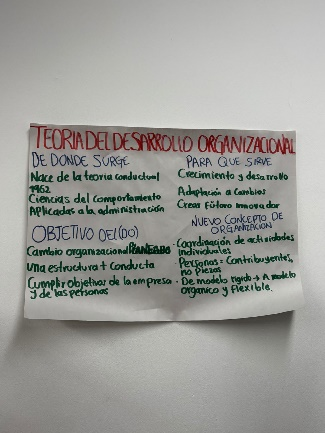 TEORIA DEL DESARROLLO ORGANIZACIONAL
DE DONDE SURGE
Nace de la teoria conductual
1962
Ciencias del comportamiento
Aplicadas a la administración
OBJETIVO DEL (DO)
Cambio organizacional PLANEADO
una estructura + conducta
Cumplir objetivos de la empresa
y de las personas
PARA QUE SIRVE
Crecimiento y desarrollo
Adaptación a cambios
Crear Futuro innovador
NUEVO CONCEPTO DE
ORGANIZACIÓN
- Coordinación de actividades
individuales
Personas = Contribuyentes,
no piezas
- De modelo rigido → A modelo
organico y Flexible.